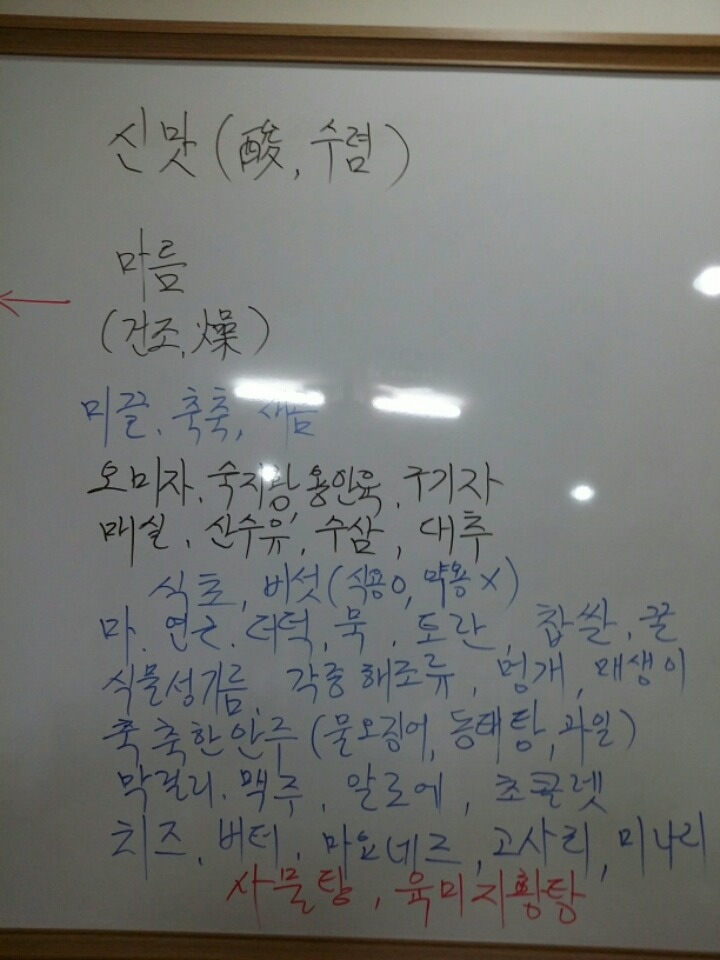 신맛 (酸, 수렴)
마름
(건조, 燥)
미끌, 축축,
오미자, 숙지황, 용안육, 구기자
매실, 산수유, 수삼, 대추
식초, 버섯 (식용o, 약용x)
마, 연근, 더덕, 묵, 토란, 찹쌀, 꿀
식물성기름, 각종 해조류, 멍개, 매생이
축축한 안주 (물오징어, 동태탕, 과일)
막걸리, 맥주, 알로에, 초콜렛
치즈, 버터, 마요네즈, 고사리, 미나리
사물탕, 육미지황탕